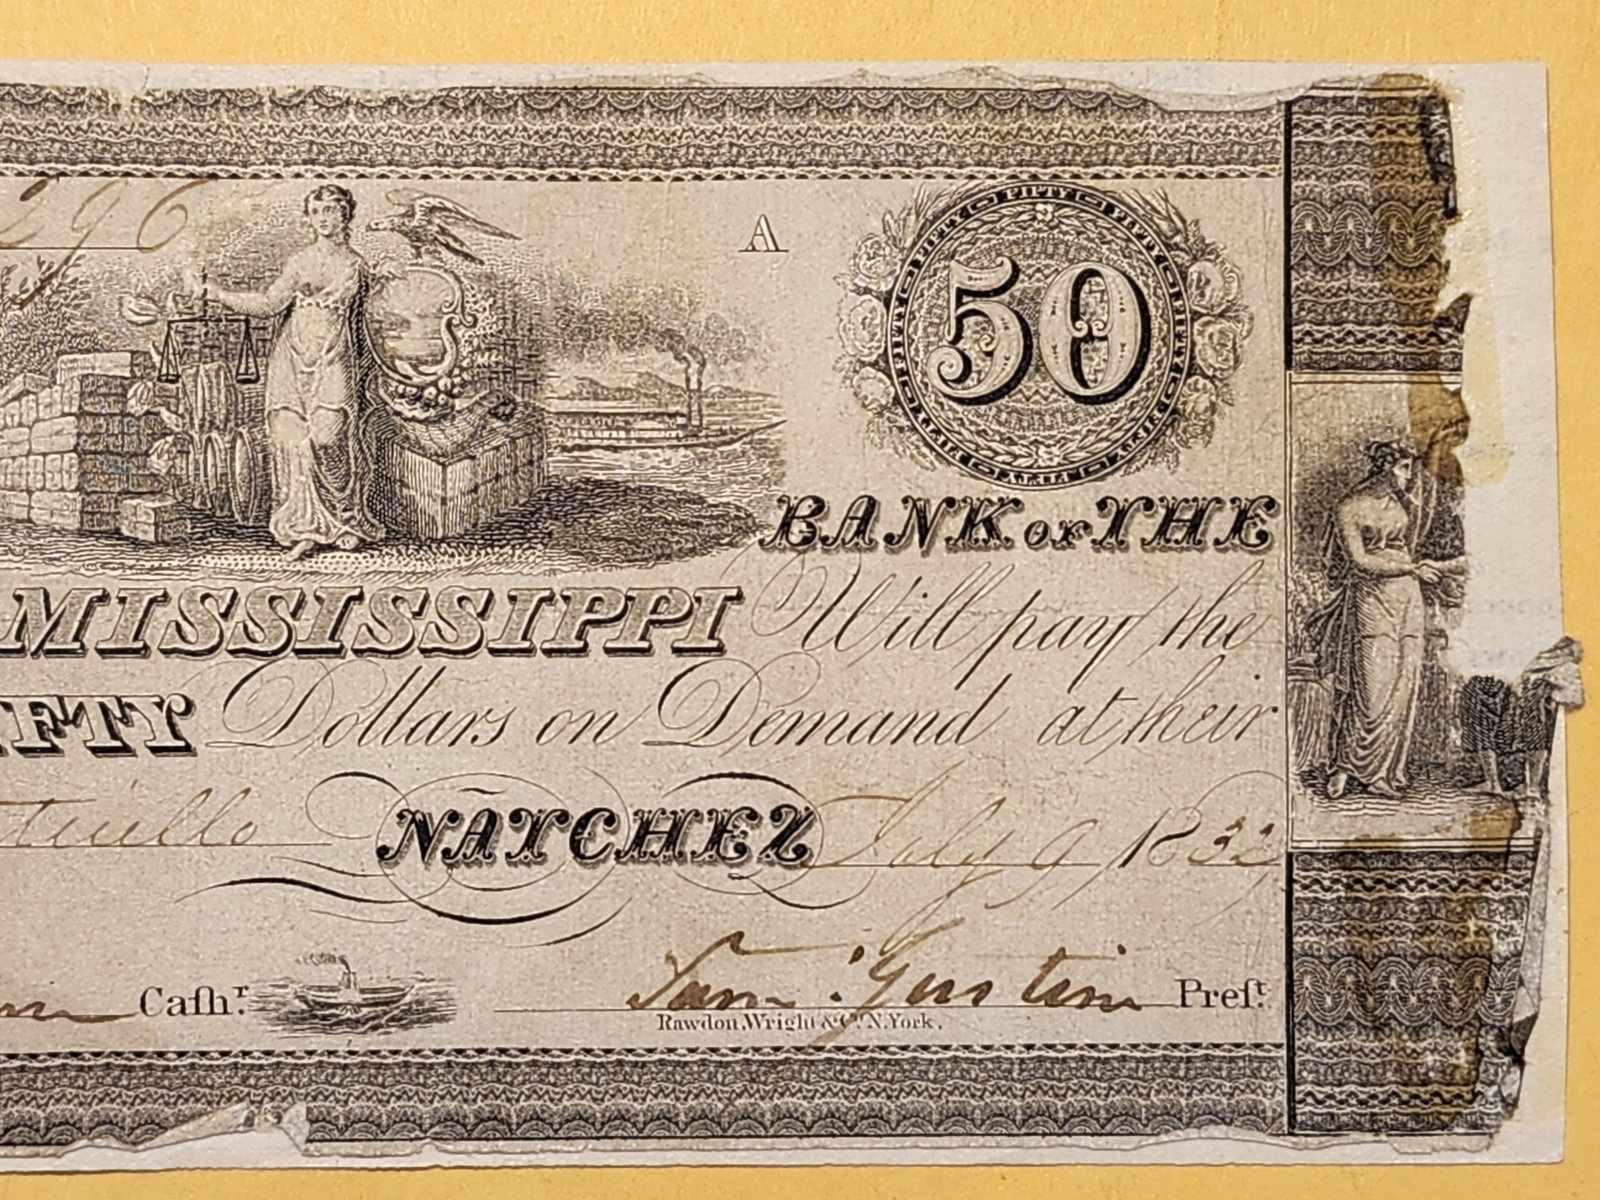 296
A
FIFTY FIFTY FIFTY FIFTY
50
BANK OF THE
MISSISSIPPI Will pay the
IFTY Dollars on Demand at their
NATCHEZ July 9 1832
Caſhr.
Sam. Gustin Preſt.
Rawdon, Wright & Co. N. York.